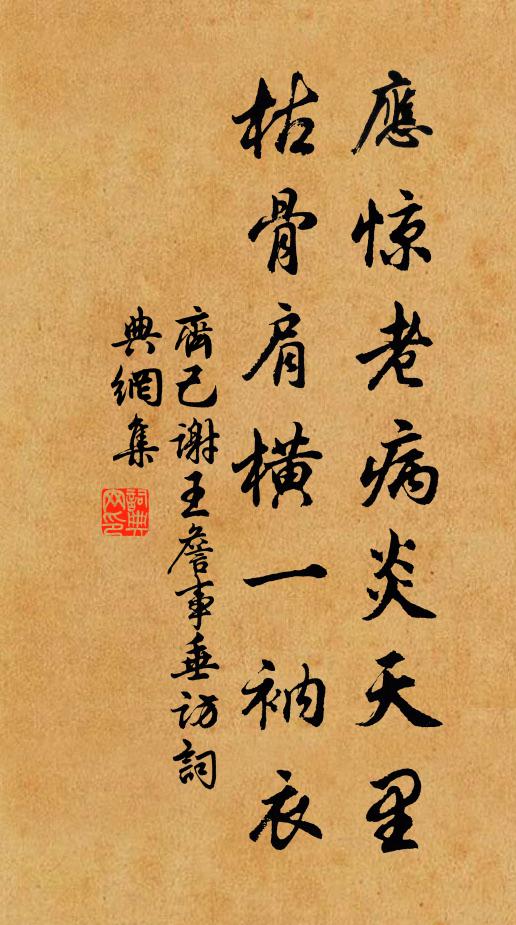 應惊老病炎天里
枯骨肩横一衲衣
齊己謝王詹事垂訪詞
典網集
詞典网印